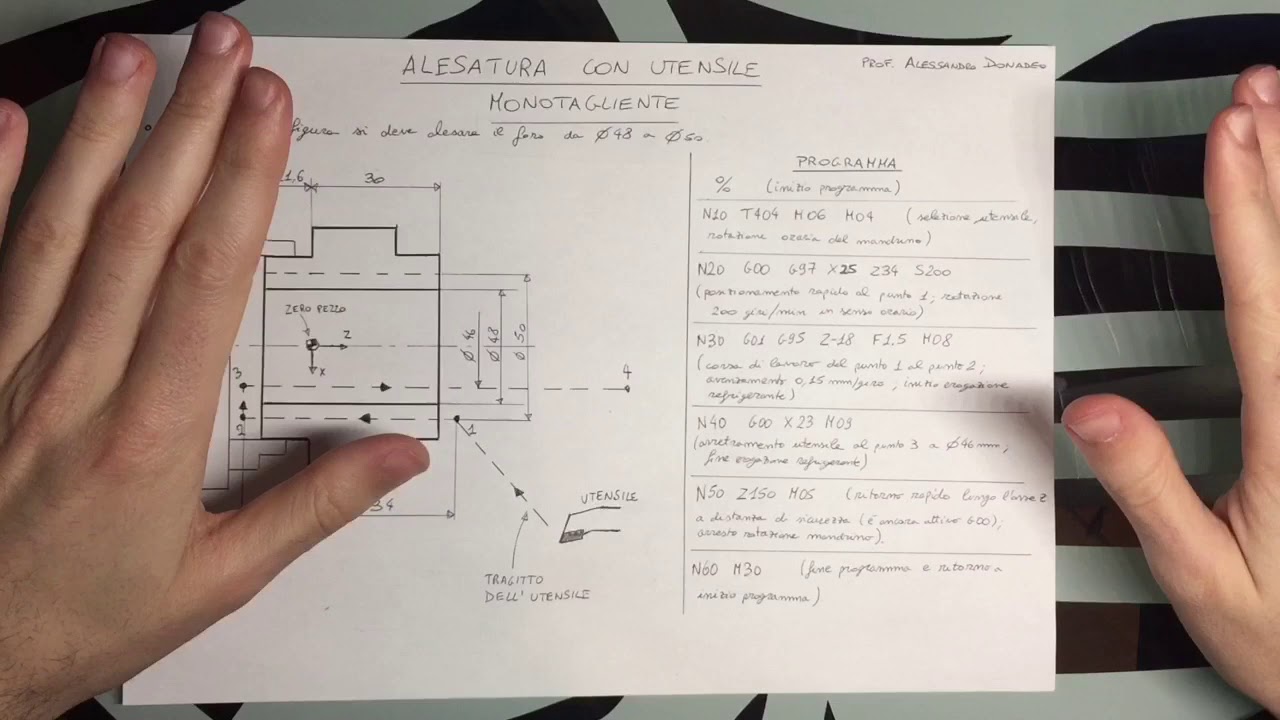 ALESATURA CON UTENSILE
PROF. ALESSANDRO DONADEO
MONOTAGLIENTE
figura si deve alesare il foro da Ø48 a Ø50.
1,6
30
ZERO PEZZO
Z
X
Ø 46
Ø 48
Ø 50
3
4
2
1
34
UTENSILE
TRAGITTO
DELL' UTENSILE
PROGRAMMA
% (inizio programma)
N10 T404 M06 M04 (selezione utensile,
rotazione oraria del mandrino)
N20 G00 G97 X25 Z34 S200
(posizionamento rapido al punto 1; rotazione
200 giri/min in senso orario)
N30 G01 G95 Z-18 F1.5 M08
(corsa di lavoro del punto 1 al punto 2;
avanzamento 0,15 mm/giro; inizio erogazione
refrigerante)
N40 G00 X23 M09
(arretramento utensile al punto 3 a Ø46mm;
fine erogazione refrigerante)
N50 Z150 M05 (ritorno rapido lungo l'asse Z
a distanza di sicurezza (è ancora attivo G00);
arresto rotazione mandrino).
N60 M30 (fine programma e ritorno a
inizio programma)